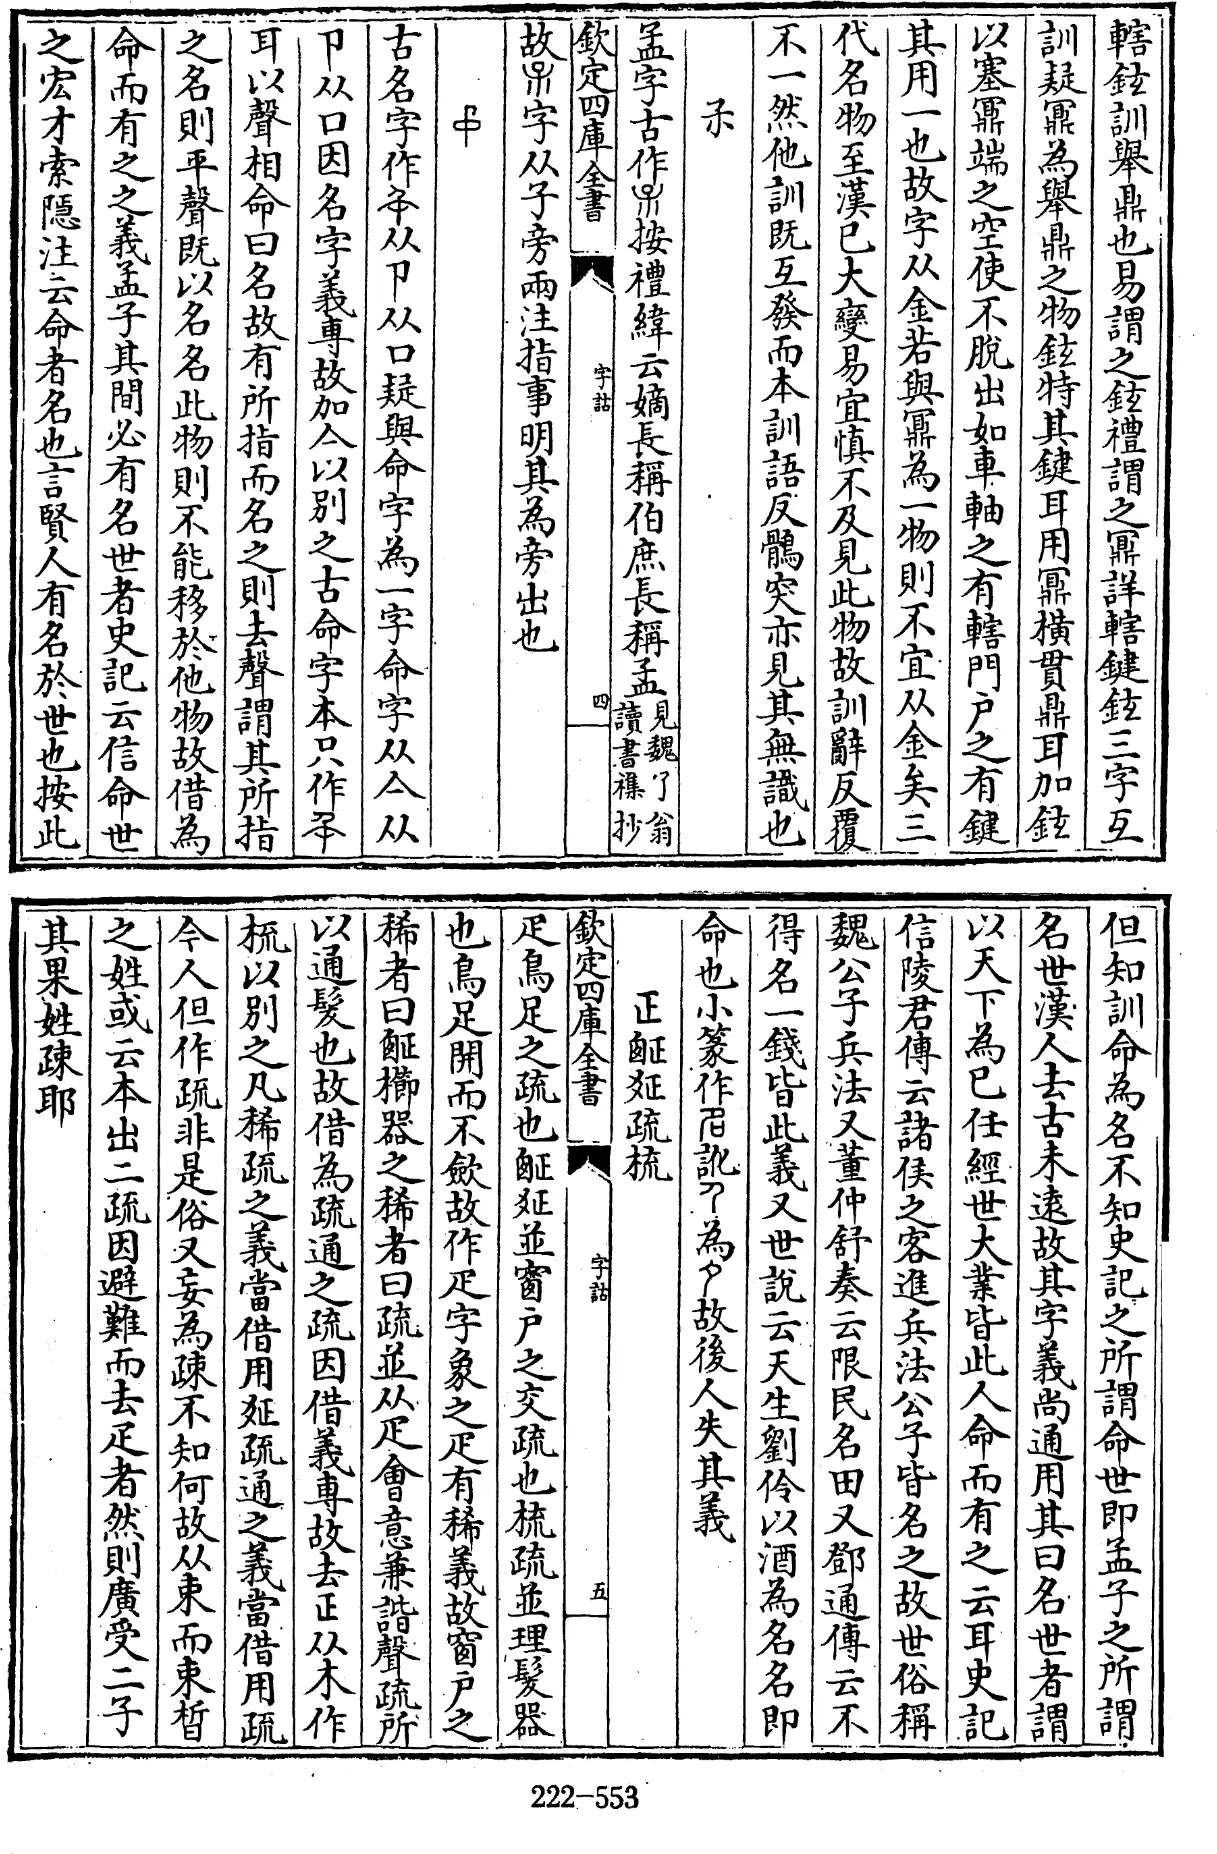 轄鉉訓舉鼎也易謂之鉉禮謂之鼏詳轄鍵鉉三字互
訓疑鼏為舉鼎之物鉉特其鍵耳用鼏橫貫鼎耳加鉉
以塞鼏端之空使不脫出如車軸之有轄門戶之有鍵
其用一也故字从金若與鼏為一物則不宜从金矣三
代名物至漢已大變易宜慎不及見此物故訓辭反覆
不一然他訓既互發而本訓語反鶻突亦見其無識也
孟字古作按禮緯云嫡長稱伯庶長稱孟見魏了翁讀書襍抄
欽定四庫全書 字詁 四
故字从子旁兩注指事明其為旁出也
古名字作从卩从口疑與命字為一字命字从亼从
卩从口因名字義專故加亼以別之古命字本只作
耳以聲相命曰名故有所指而名之則去聲謂其所指
之名則平聲既以名名此物則不能移於他物故借為
命而有之之義孟子其間必有名世者史記云信命世
之宏才索隱注云命者名也言賢人有名於世也按此
但知訓命為名不知史記之所謂命世即孟子之所謂
名世漢人去古未遠故其字義尚通用其曰名世者謂
以天下為已任經世大業皆此人命而有之云耳史記
信陵君傳云諸侯之客進兵法公子皆名之故世俗稱
魏公子兵法又董仲舒奏云限民名田又鄧通傳云不
得名一錢皆此義又世說云天生劉伶以酒為名名即
命也小篆作訛卩為夕故後人失其義
疋䟽𤴙疏梳
欽定四庫全書 字詁 五
疋鳥足之疏也𤴙並窗戶之交疏也梳疏並理髮器
也鳥足開而不歛故作疋字象之疋有稀義故窗戶之
稀者曰櫛器之稀者曰疏並从疋會意兼諧聲疏所
以通髮也故借為疏通之疏因借義專故去疋从木作
梳以別之凡稀疏之義當借用疏通之義當借用疏
今人但作疏非是俗又妄為疎不知何故从束而束晳
之姓或云本出二疏因避難而去疋者然則廣受二子
其果姓疎耶
222-553